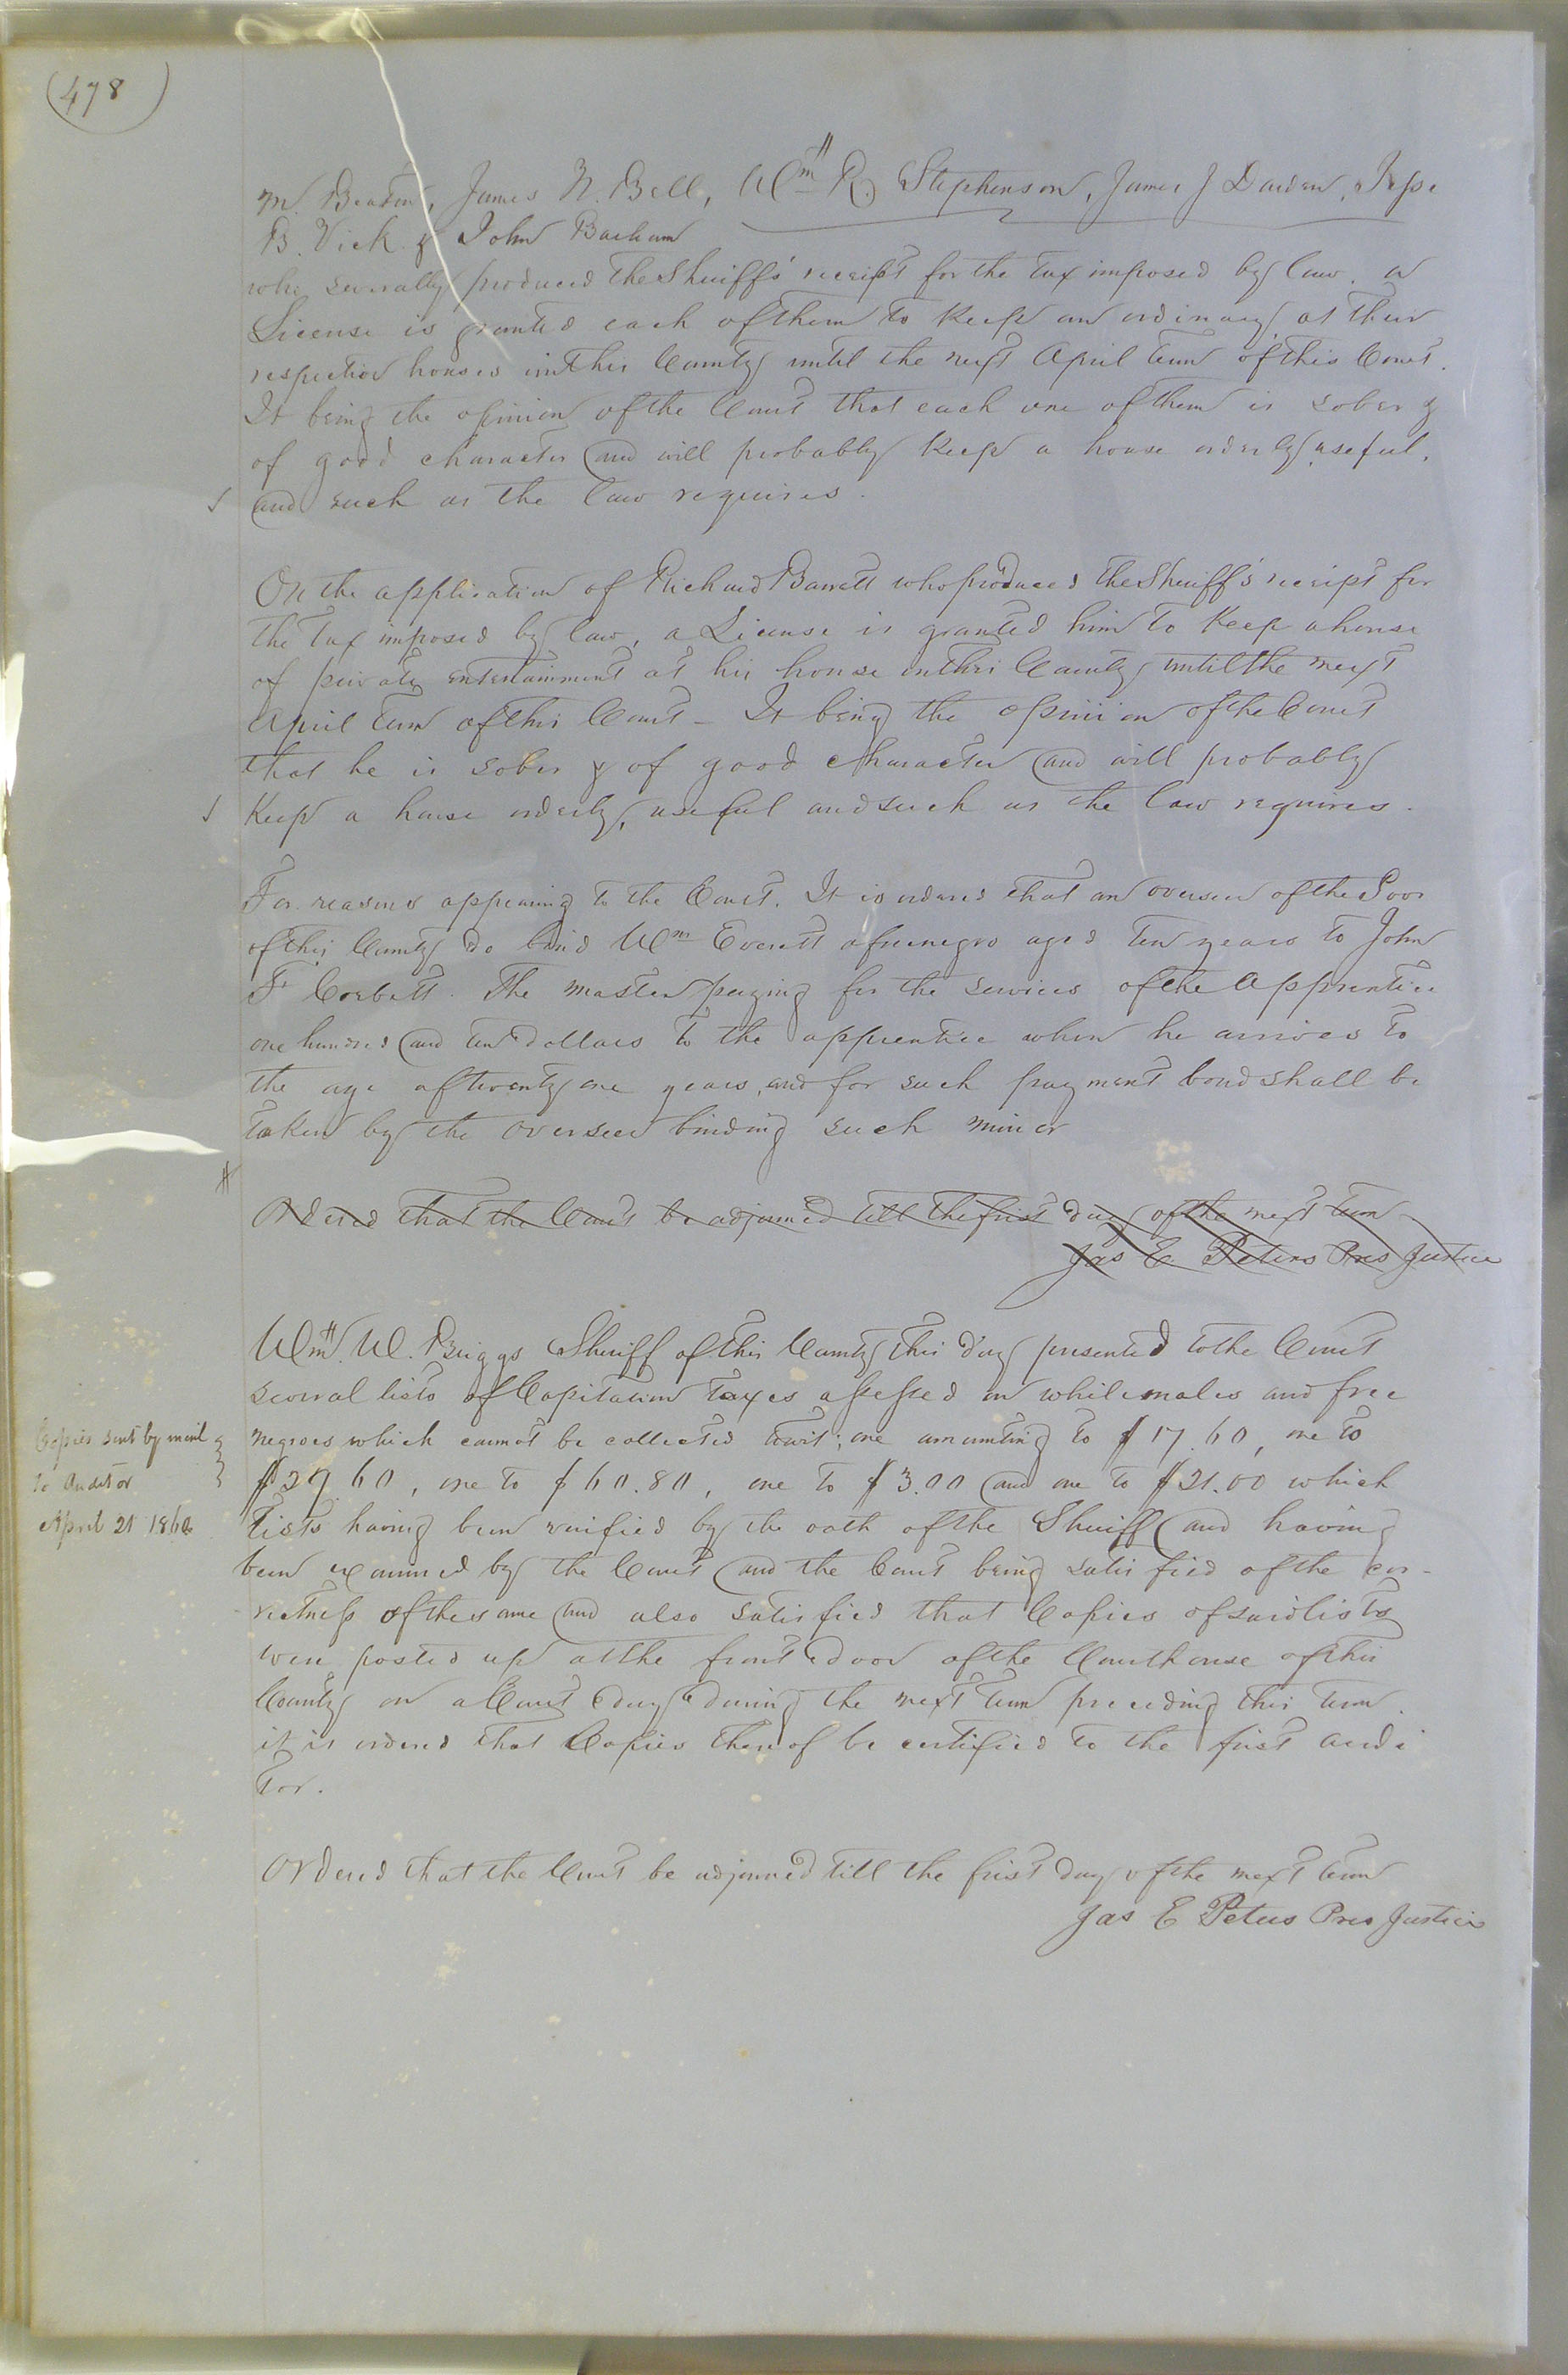 (478)
M. Beaton, James N. Bell, Wm R. Stephenson, James J Darden, Jesse
B. Vick & John Barham
who severally produced the Sheriffs' receipt for the tax imposed by law, a
License is granted each of them to Keep an ordinary at their
respective houses in this County until the next April term of this Court.
It being the opinion of the Court that each one of them is sober &
of good character and will probably Keep a house orderly, useful,
and such as the law requires.
On the application of Richard Barrett who produced the Sheriff's receipt for
the tax imposed by law, a License is granted him to Keep a house
of private entertainment at his house in this County until the next
April term of this Court - It being the opinion of the Court
that he is sober & of good character and will probably
Keep a house orderly, useful and such as the law requires.
For reasons appearing to the Court. It is ordered that an overseer of the Poor
of this County do bind Wm Everett a free negro aged ten years to John
F. Corbett. The master paying for the services of the Apprentice
one hundred and ten dollars to the apprentice when he arrives to
the age of twenty one years, and for such payment bond shall be
taken by the overseer binding such minor
Ordered that the Court be adjourned till the first day of the next term
Jas E Peters Pres Justice
Wm. W. Briggs Sheriff of this County this day presented to the Court
several lists of Capitation taxes assessed on white males and free
negroes which cannot be collected towit; one amounting to $17.60, one to
$29.60, one to $60.80, one to $3.00 and one to $21.00 which
Copies sent by mail
to Auditor
April 21 1860
lists having been verified by the oath of the Sheriff and having
been examined by the Court and the Court being satisfied of the cor-
rectness of the same and also satisfied that Copies of said lists
were posted up at the front door of the Courthouse of this
County on a Court day during the next term preceding this term.
it is ordered that Copies thereof be certified to the first audi
tor.
Ordered that the Court be adjourned till the first day of the next term
Jas E Peters Pres Justice